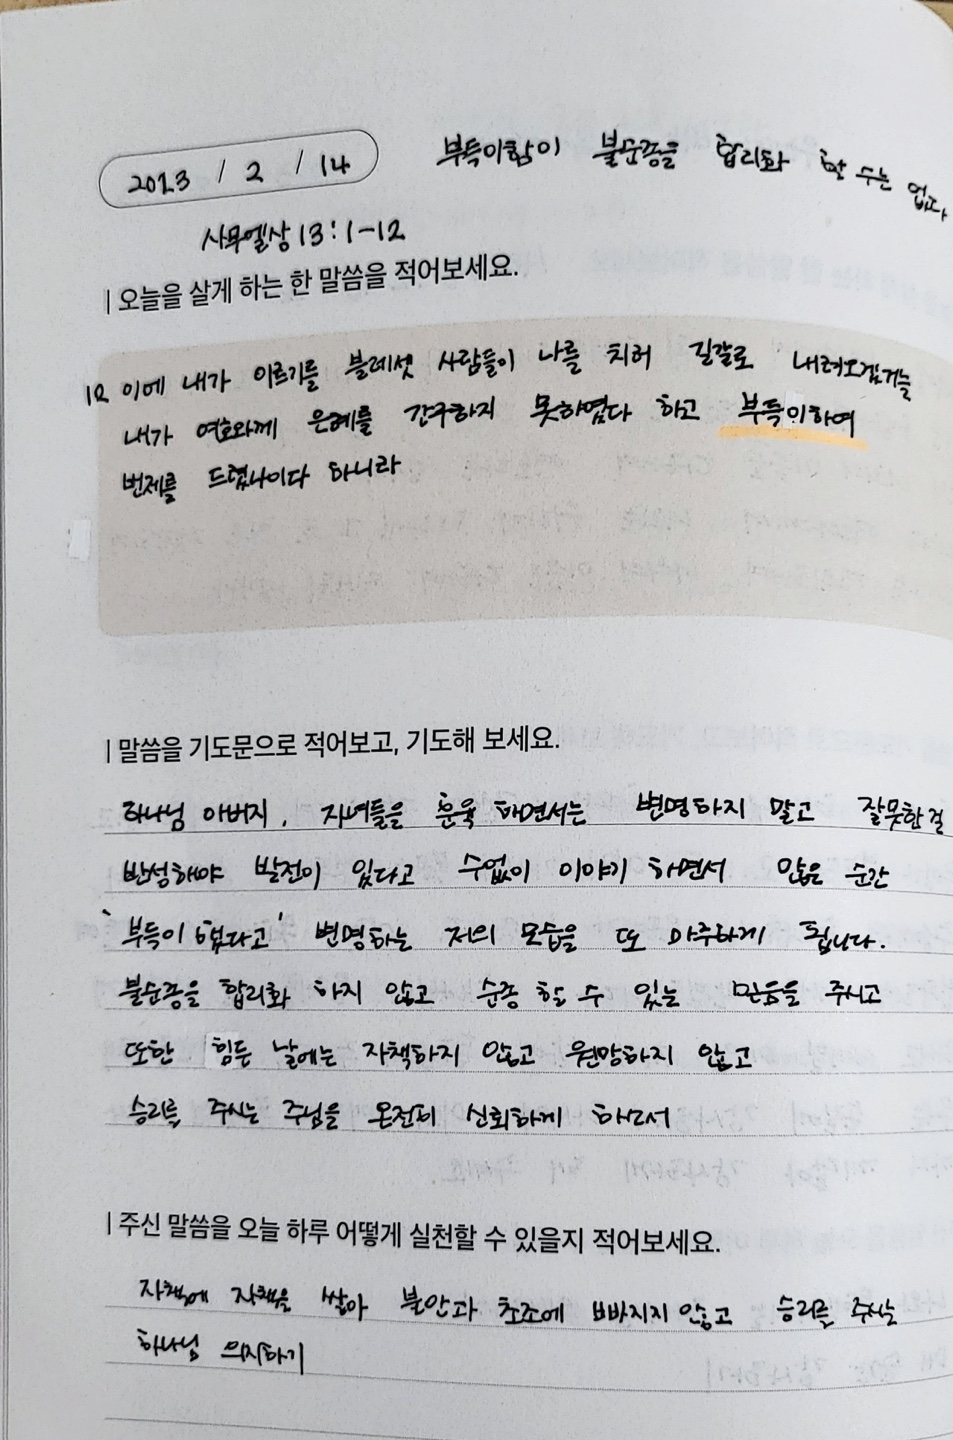 2023 / 2 / 14
부득이함이 불순종을 합리화 할 수는 없다
사무엘상 13:1-12
| 오늘을 살게 하는 한 말씀을 적어보세요.
12 이에 내가 이르기를 블레셋 사람들이 나를 치러 길갈로 내려오겠거늘
내가 여호와께 은혜를 간구하지 못하였다 하고 부득이하여
번제를 드렸나이다 하니라
| 말씀을 기도문으로 적어보고, 기도해 보세요.
하나님 아버지, 자녀들을 훈육 하면서는 변명하지 말고 잘못한걸
반성해야 발전이 있다고 수없이 이야기 하면서 많은 순간
'부득이 했다고' 변명하는 저의 모습을 또 마주하게 됩니다.
불순종을 합리화 하지 않고 순종 할 수 있는 믿음을 주시고
또한 힘든 날에는 자책하지 않고 원망하지 않고
승리를 주시는 주님을 온전히 신뢰하게 하소서
| 주신 말씀을 오늘 하루 어떻게 실천할 수 있을지 적어보세요.
자책에 자책을 쌓아 불안과 초조에 빠지지 않고 승리를 주시는
하나님 의지하기